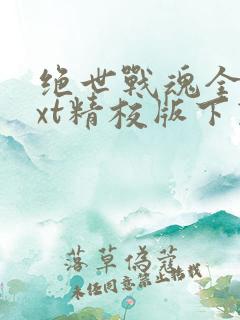 绝世戰魂全
xt精校版下
落草偽蔻
未经同意禁止转载